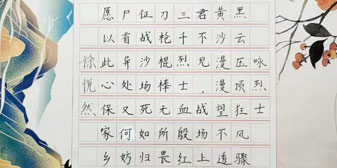 愿尸征刀三君黄黑
以首战枪千不沙云
惊此异沙棍烈见漫压咏
悦心处场棒士，漫顶烈
然保又死无血战望狂士
家何如所般场不风
乡妨归畏红上连骤